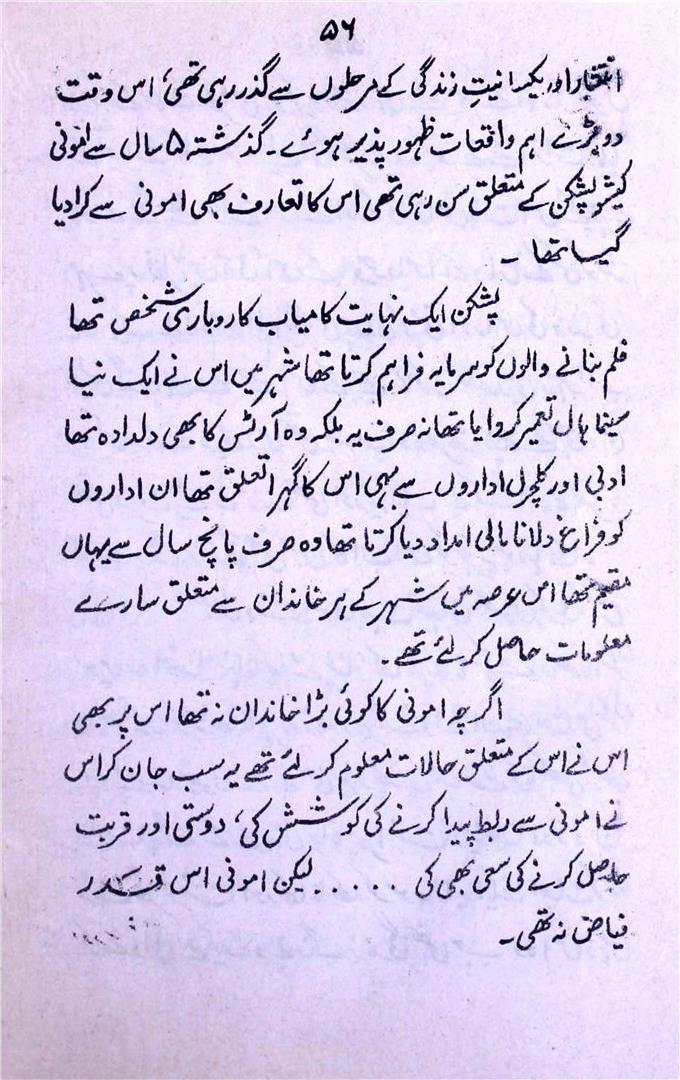 ۵۶
انتشار اور یکسانیتِ زندگی کے مرحلوں سے گذر رہی تھی، اس وقت
دو بڑے اہم واقعات ظہور پذیر ہوئے۔ گذشتہ ۵ سال سے امونی
کیشو پشکن کے متعلق سن رہی تھی اس کا تعارف بھی امونی سے کرا دیا
گیا تھا ۔
پشکن ایک نہایت کامیاب کاروباری شخص تھا
فلم بنانے والوں کو سرمایہ فراہم کرتا تھا شہر میں اس نے ایک نیا
سینما ہال تعمیر کروایا تھا نہ صرف یہ بلکہ وہ آرٹس کا بھی دلدادہ تھا
ادبی اور کلچرل اداروں سے بھی اس کا گہرا تعلق تھا ان اداروں
کو فراغ دلانا مالی امداد دیا کرتا تھا وہ صرف پانچ سال سے یہاں
مقیم تھا اس عرصہ میں شہر کے ہر خاندان سے متعلق سارے
معلومات حاصل کر لئے تھے ۔
اگرچہ امونی کا کوئی بڑا خاندان نہ تھا اس پر بھی
اس نے اس کے متعلق حالات معلوم کر لئے تھے یہ سب جان کر اس
نے امونی سے ربط پیدا کرنے کی کوشش کی، دوستی اور قربت
حاصل کرنے کی سعی بھی کی ...... لیکن امونی اس قدر
فیاض نہ تھی ۔